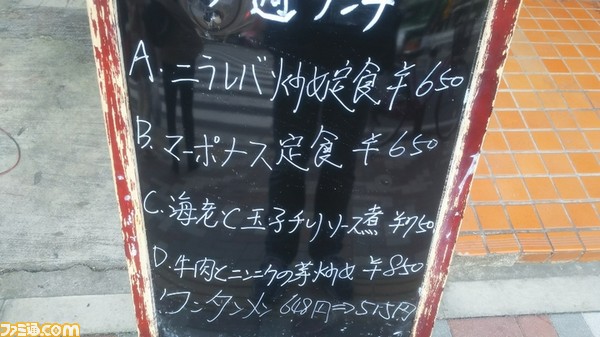 今週ランチ
A. ニラレバ炒め定食 ¥650
B. マーボナス定食 ¥650
C. 海老と玉子チリソース煮 ¥750
D. 牛肉とニンニクの芽炒め ¥850
ワンタンメン 648円⇒515円
ファミ通.com